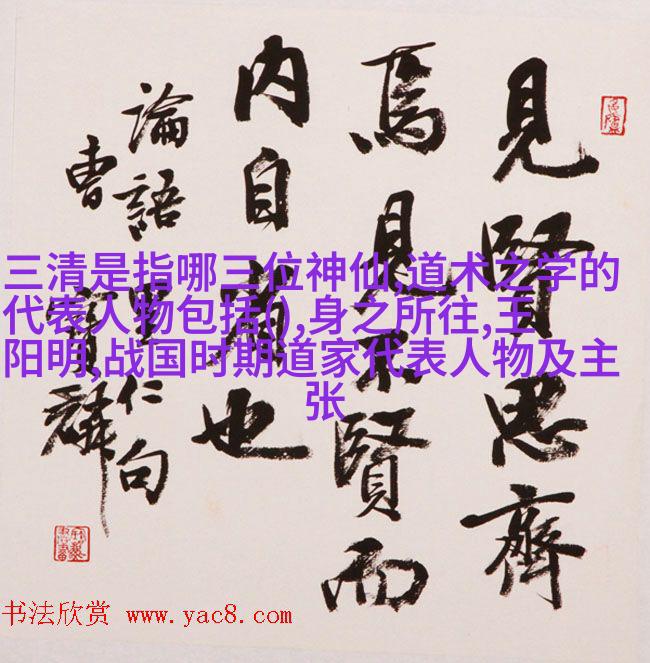 見賢思齊
焉見不賢而
内自省也
論語里仁句
曹寶麟
三清是指哪三位神仙,道术之学的
代表人物包括(),身之所往,王
阳明,战国时期道家代表人物及主
张
书法欣赏 www.yac8.com